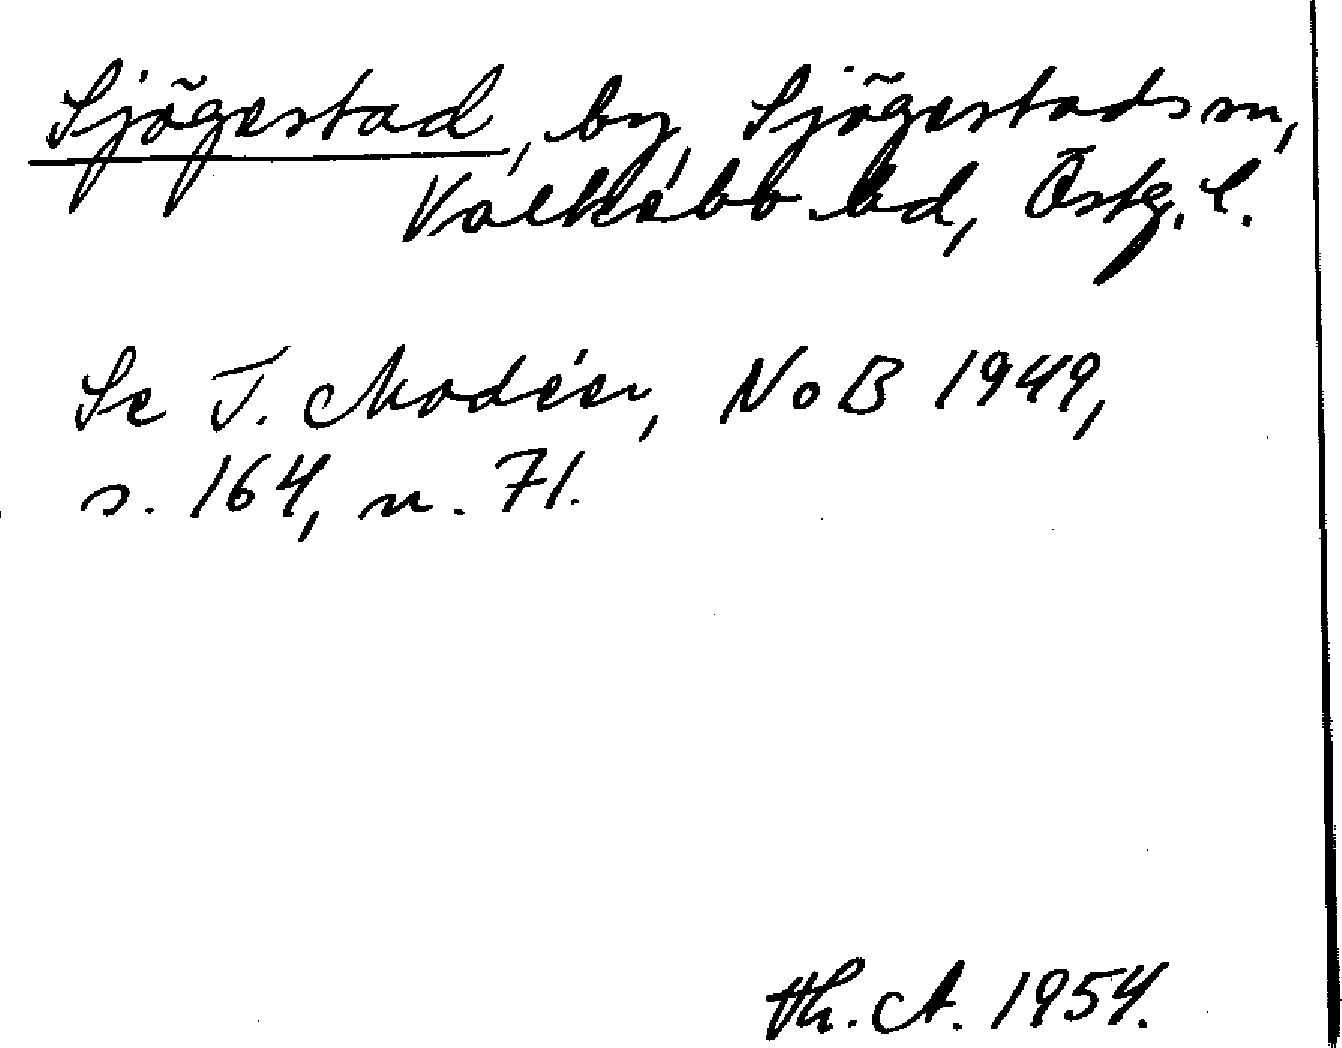 Sjögestad, by, Sjögestads sn,
Valkebo hd, Östg. l.
Se I. Modéer, NoB 1949,
s. 164, n. 71.
Th. A. 1954.